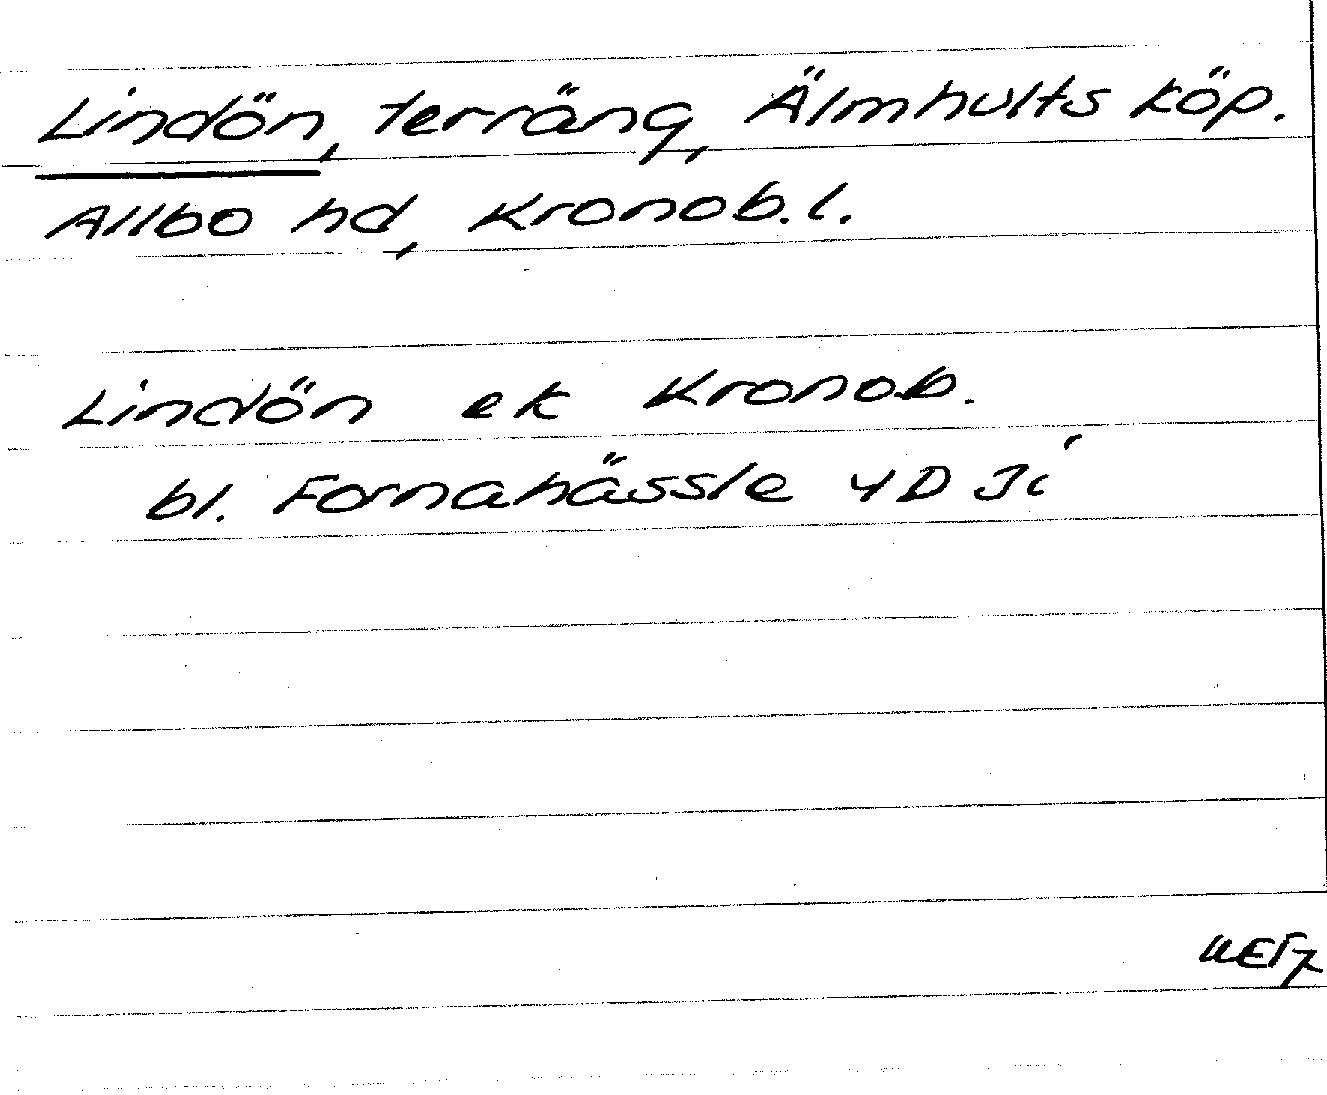 Lindön, terräng, Älmhults köp.
Allbo hd, Kronob. l.
Lindön ek Kronob.
bl. Fornahässle 4D